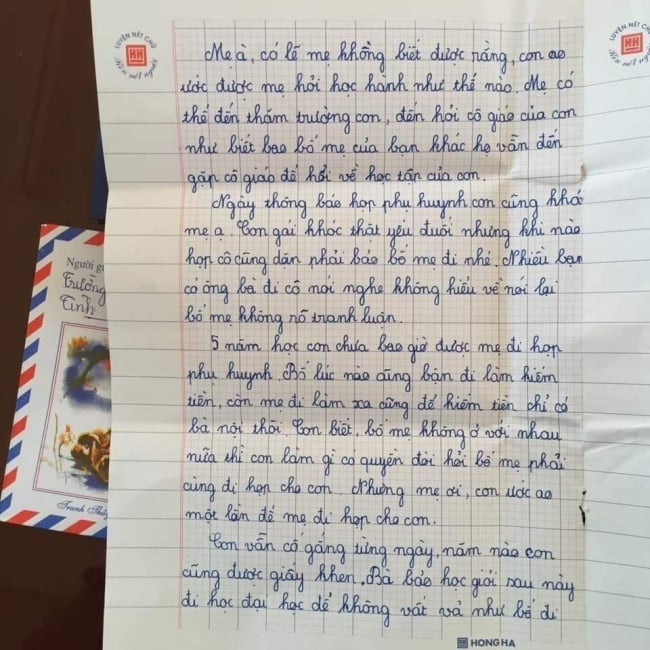 LUYỆN NÉT CHỮ
HH
Rèn nết người
LUYỆN NÉT CHỮ
HH
Rèn nết người
Mẹ à, có lẽ mẹ không biết được rằng, con ao
ước được mẹ hỏi học hành như thế nào. Mẹ có
thể đến thăm trường con, đến hỏi cô giáo của con
như biết bao bố mẹ của bạn khác họ vẫn đến
gặp cô giáo để hỏi về học tập của con.
Ngày thông báo họp phụ huynh con cũng khóc
mẹ ạ. Con gái khóc thật yếu đuối nhưng khi nào
họp cô cũng dặn phải bảo bố mẹ đi nhé. Nhiều bạn
có ông bà đi cô nói nghe không hiểu về nói lại
bố mẹ không rõ tranh luận.
5 năm học con chưa bao giờ được mẹ đi họp
phụ huynh. Bố lúc nào cũng bận đi làm kiếm
tiền, còn mẹ đi làm xa cũng để kiếm tiền chỉ có
bà nội thôi. Con biết, bố mẹ không ở với nhau
nữa thì con làm gì có quyền đòi hỏi bố mẹ phải
cùng đi họp cho con. Nhưng mẹ ơi, con ước ao
một lần để mẹ đi họp cho con.
Con vẫn cố gắng từng ngày, năm nào con
cũng được giấy khen. Bà bảo học giỏi sau này
đi học đại học để không vất vả như bố đi
HH HONG HA
Người g
Trường
Tinh
Tranh Thủy